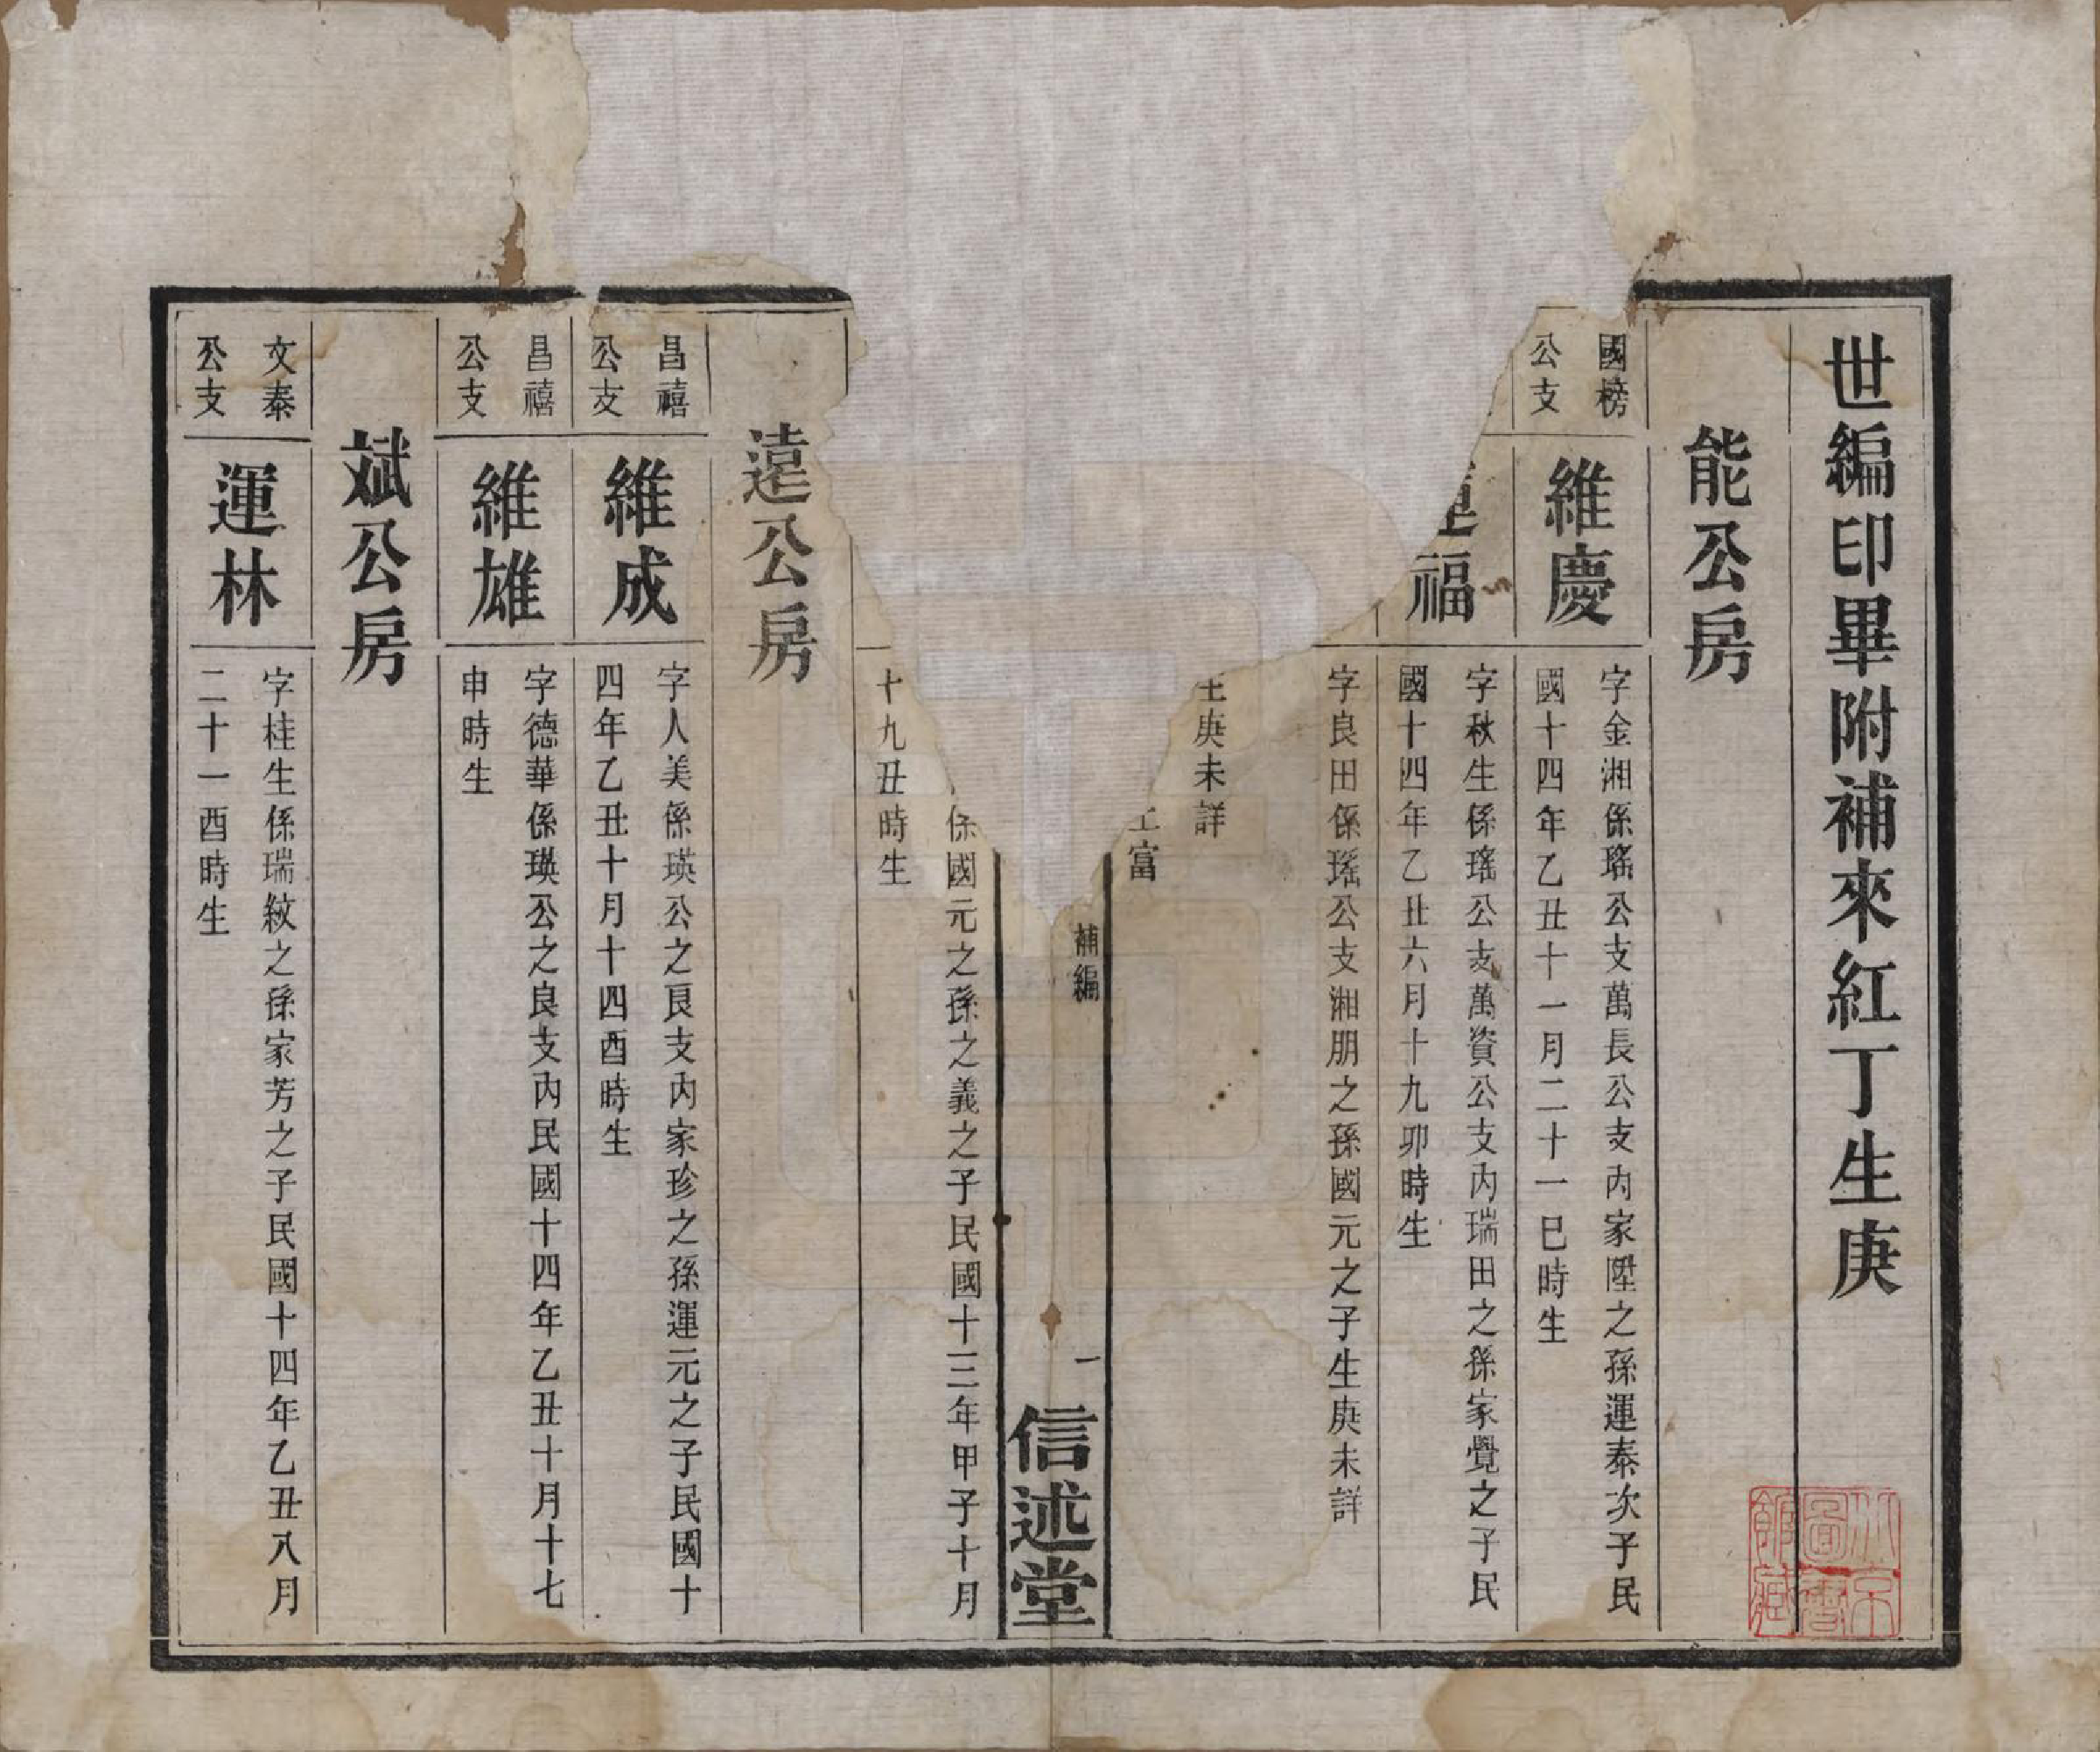 世編印畢附補來紅丁生庚
能公房
國榜
公支
維慶
字金湘係瑤公支萬長公支內家陞之孫運泰次子民
國十四年乙丑十一月二十一巳時生
福
字秋生係瑤公支萬資公支內瑞田之孫家覺之子民
國十四年乙丑六月十九卯時生
字良田係瑤公支湘朋之孫國元之子生庚未詳
庚未詳
富
補編
一
信述堂
係國元之孫之義之子民國十三年甲子十月
十九丑時生
遠公房
昌禧
公支
維成
字人美係瑛公之良支內家珍之孫運元之子民國十
四年乙丑十月十四酉時生
昌禧
公支
維雄
字德華係瑛公之良支內民國十四年乙丑十月十七
申時生
斌公房
文泰
公支
運林
字桂生係瑞紋之孫家芳之子民國十四年乙丑八月
二十一酉時生
北京
圖書
館藏